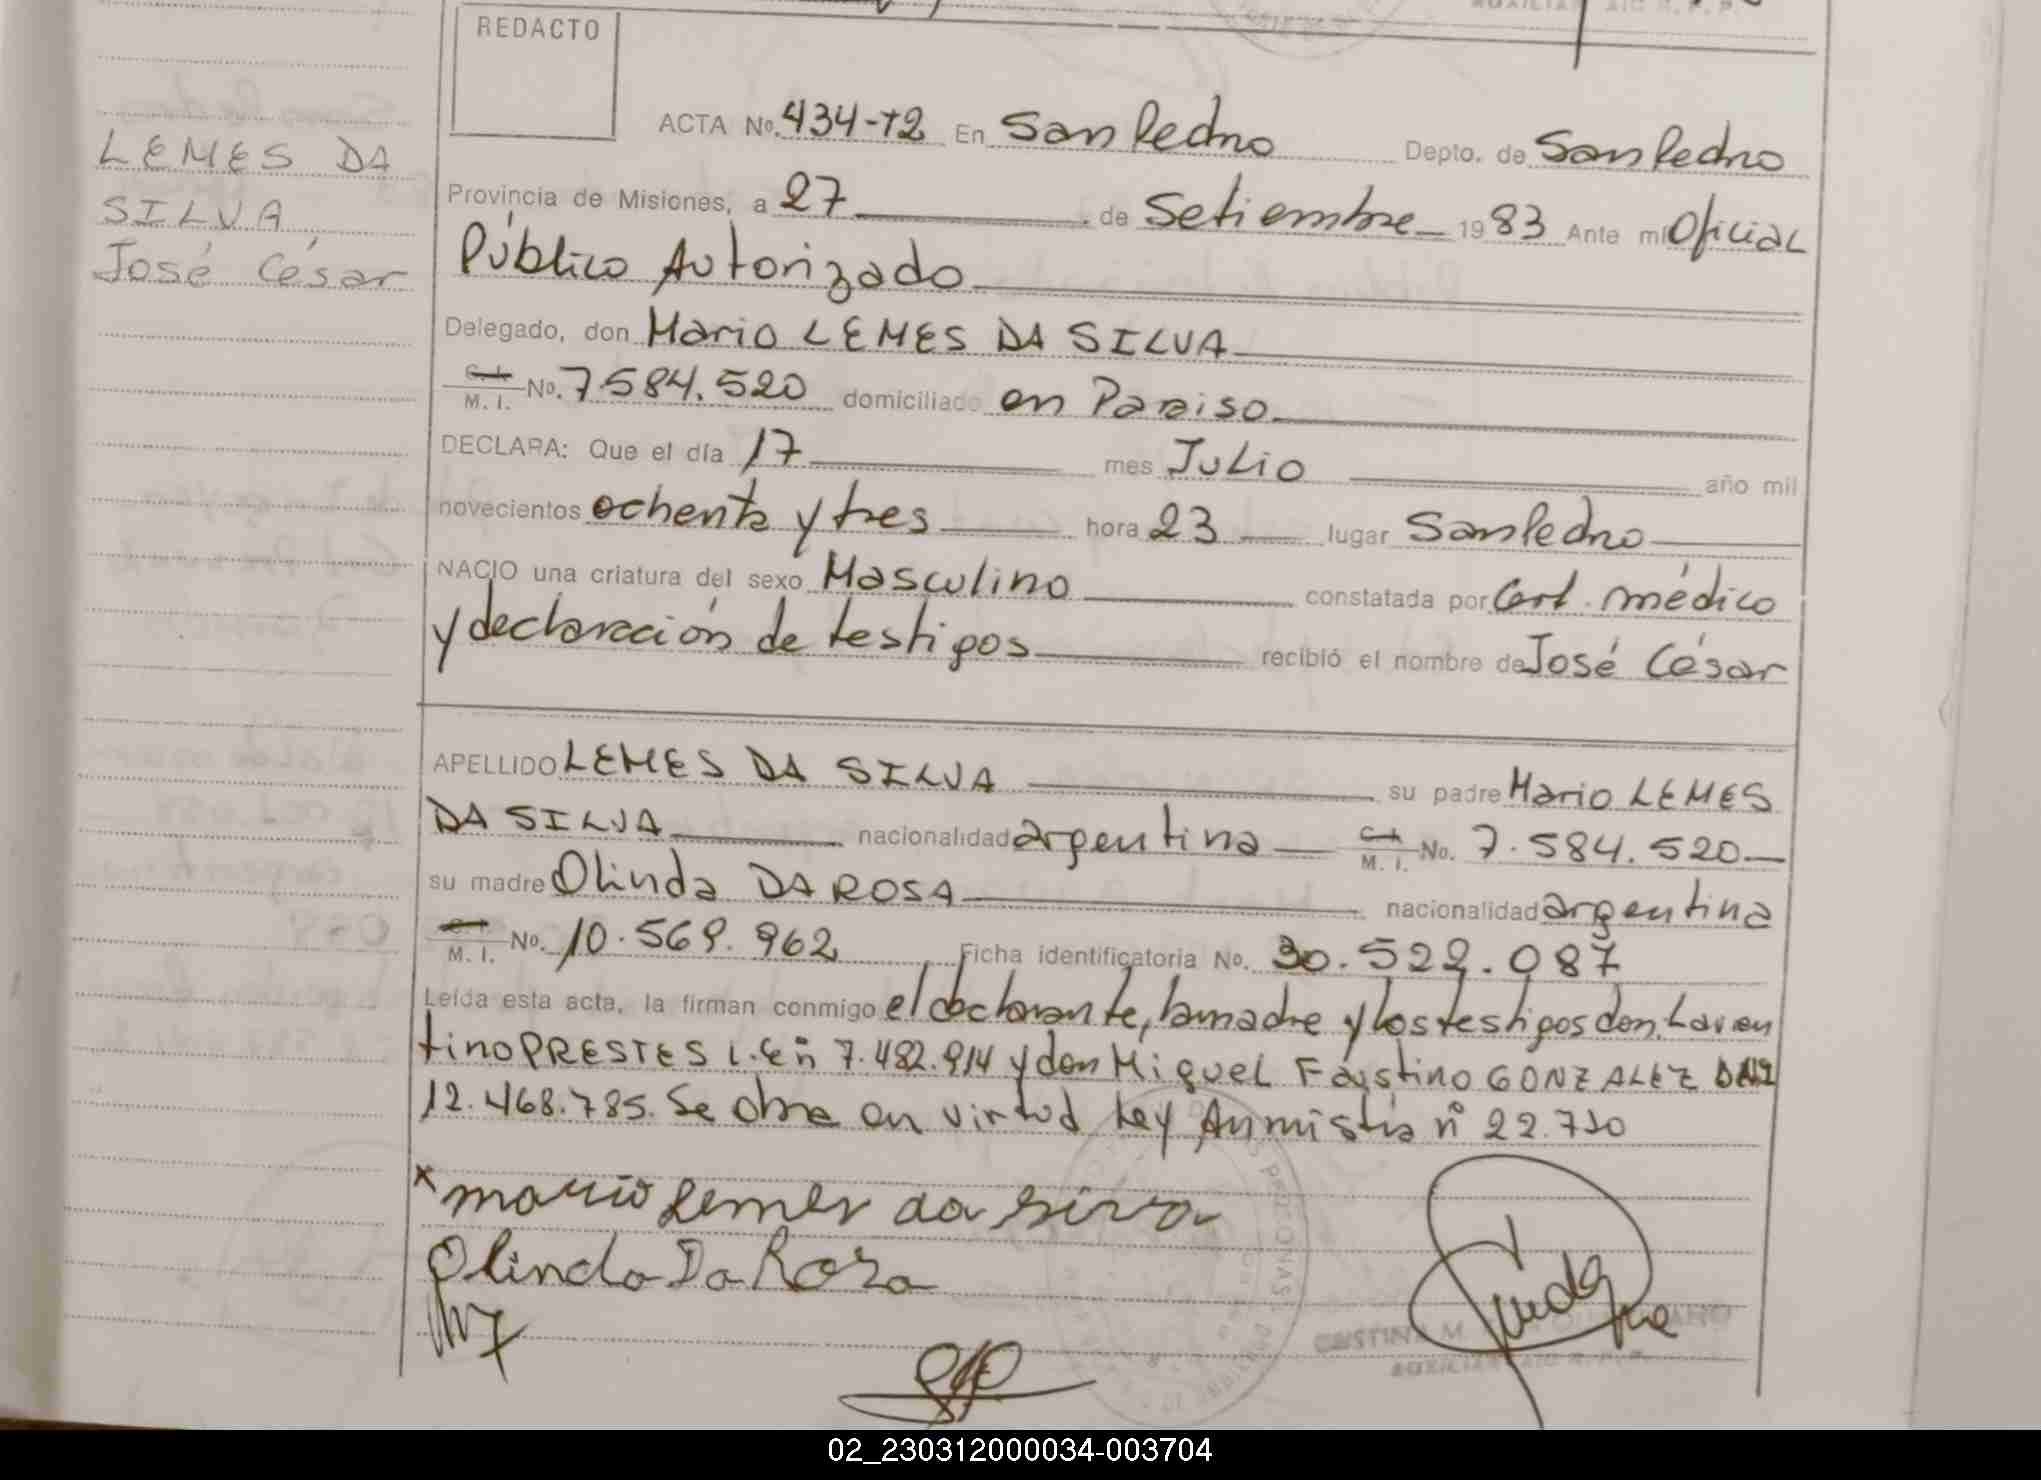 REDACTO
LEMES DA
SILVA
José César
ACTA No. 434-T2 En San Pedro Depto. de San Pedro
Provincia de Misiones, a 27 de Setiembre 1983 Ante mi Oficial
Público Autorizado
Delegado, don Mario LEMES DA SILVA
C. I. M. I. No. 7584.520 domiciliado en Paraiso
DECLARA: Que el día 17 mes Julio año mil
novecientos ochenta y tres hora 23 lugar San Pedro
NACIO una criatura del sexo Masculino constatada por Cert. médico
y declaración de testigos recibió el nombre de José César
APELLIDO LEMES DA SILVA su padre Mario LEMES
DA SILVA nacionalidad argentina C. I. M. I. No. 7.584.520
su madre Olinda DA ROSA nacionalidad argentina
C. I. M. I. No. 10.569.962 Ficha identificatoria No. 30.522.087
Leída esta acta, la firman conmigo el declarante, la madre y los testigos don Lauren
tino PRESTES L.E n 7.482.914 y don Miguel Faustino GONZALEZ DNI
12.468.785. Se obra en virtud Ley Anmistia nº 22.710
x mario Lemes da silva
Olinda Da Roza
AUXILIAR
02_230312000034-003704